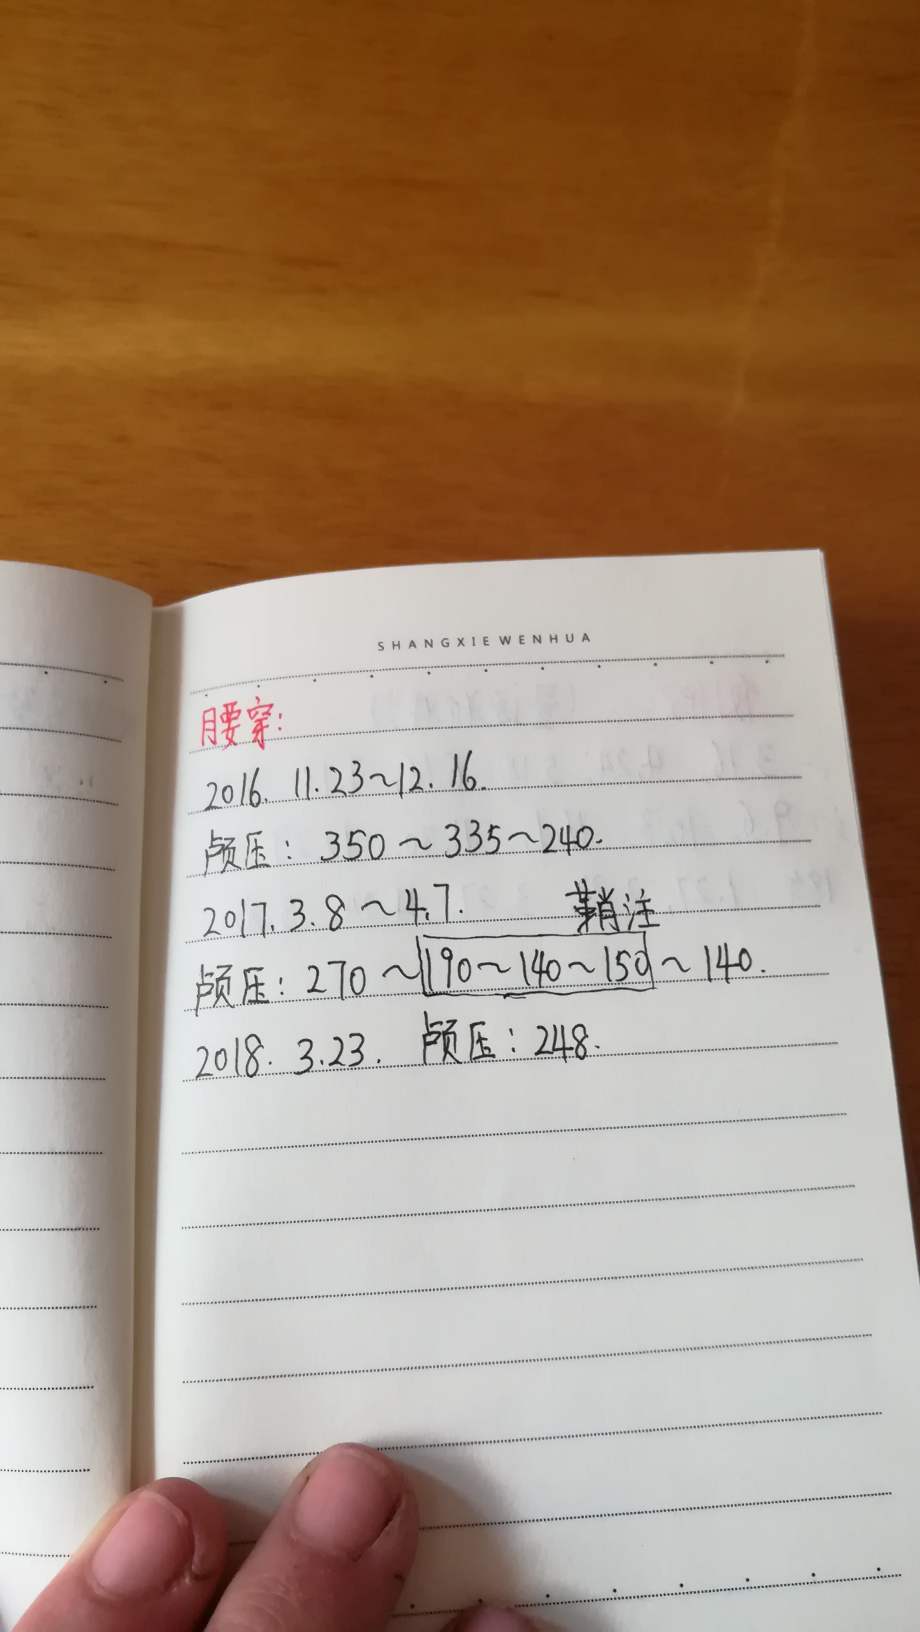 SHANGXIE WENHUA
腰穿:
2016. 11.23~12.16.
颅压: 350~335~240.
2017.3.8~4.7. 鞘注
颅压: 270~190~140~150~140.
2018. 3.23. 颅压: 248.